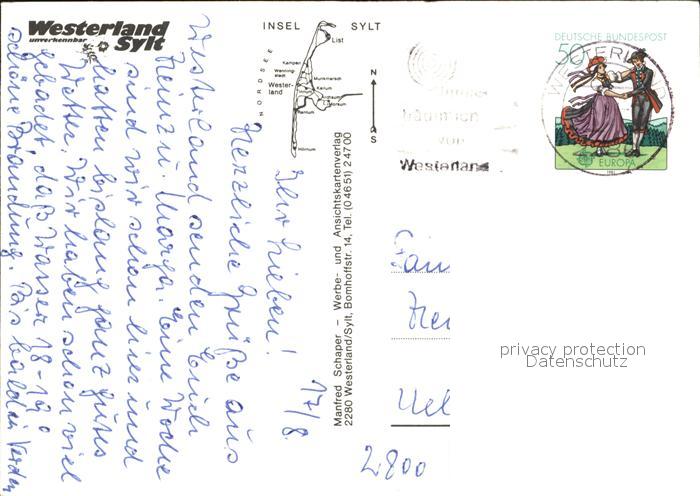 Westerland
unverkennbar
Sylt
INSEL SYLT
NORDSEE
List
Kampen
Wenning-
stedt
Munkmarsch
Wester-
land
Keitum
Archsum
Morsum
Rantum
Hörnum
N
S
Manfred Schaper – Werbe- und Ansichtskartenverlag
2280 Westerland/Sylt, Bomhoffstr. 14, Tel. (04651) 24700
17/8.
Ihr Lieben!
Herzliche Grüße aus
Westerland senden Euch
Heinz u. Marga. Eine Woche
sind wir schon hier und
hatten bislang ganz gutes
Wetter. Wir haben schon viel
gebadet, das Wasser 18-19°
schöne Brandung. Bis bald in Verden
träum ich
von
Westerland
WESTERLAND
DEUTSCHE BUNDESPOST
50
EUROPA
1981
Fam
Hei
2800
privacy protection
Datenschutz